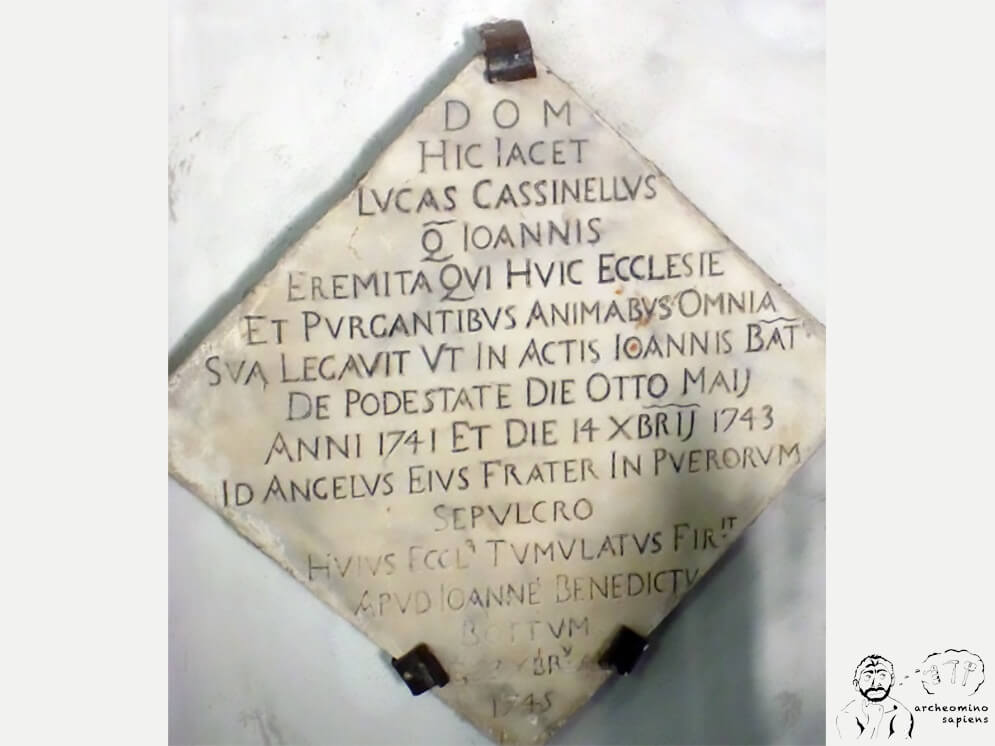 D O M
HIC IACET
LVCAS CASSINELLVS
Q̃ IOANNIS
EREMITA QVI HVIC ECCLESIE
ET PVRGANTIBVS ANIMABVS OMNIA
SVA LEGAVIT VT IN ACTIS IOANNIS BAT̃
DE PODESTATE DIE OTTO MAIJ
ANNI 1741 ET DIE 14 XBRIJ 1743
ID ANGELVS EIVS FRATER IN PVERORVM
SEPVLCRO
HVIVS ECCL TVMVLATVS FIR.IT
APVD IOANNE BENEDICTV
BOTTVM
1745
archeomino
sapiens